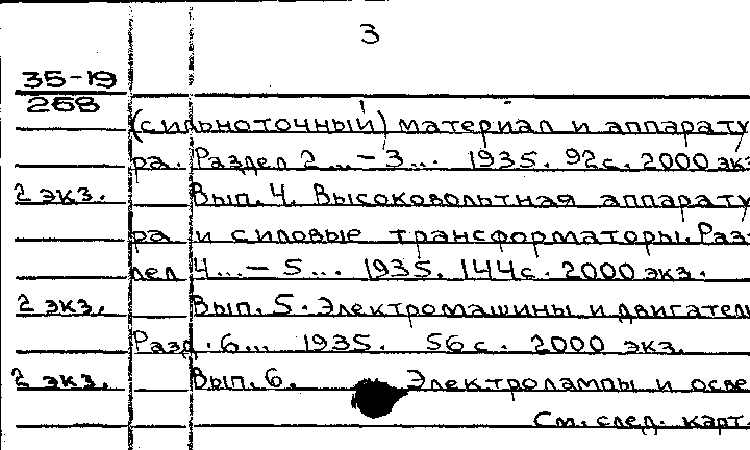 3
35-19
268
(сильноточный) материал и аппарату
ра. Раздел 2... – 3... 1935. 92с. 2000 экз
2 экз. Вып. 4. Высоковольтная аппарату
ра и силовые трансформаторы. Раз
дел 4... – 5... 1935. 144с. 2000 экз.
2 экз. Вып. 5. Электромашины и двигатели
Разд. 6... 1935. 56 с. 2000 экз.
2 экз. Вып. 6. Электролампы и осве
См. след. карт.